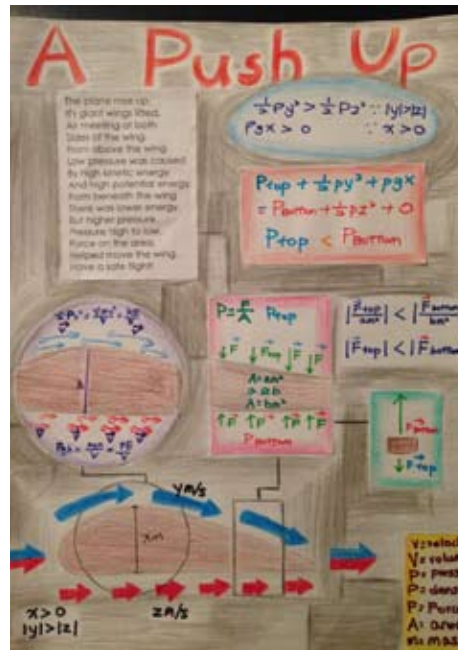 A Push Up
The plane rose up.
It's giant wings lifted,
Air meeting at both
Sides of the wing.
From above the wing
Low pressure was caused
By high kinetic energy
And high potential energy.
From beneath the wing
There was lower energy
But higher pressure.
Pressure high to low,
Force on the area,
Helped move the wing.
Have a safe flight!
½ρy² > ½ρz² ∵ |y|>|z|
ρgx > 0 ∵ x > 0
Ptop + ½ρy² + ρgx
= PBottom + ½ρz² + 0
Ptop < PBottom
P = F/A Ptop
↓F ↓Ftop ↓F ↓F
A = am²
a ≥ b
A = bm²
↑F ↑F ↑F ↑F
PBottom
|Ftop/am²| < |FBottom/bm²|
|Ftop| < |FBottom
FBottom
Ftop
y m/s
x m
z m/s
x > 0
|y|>|z|
V = veloci
V = volum
P = press
ρ = dens
F = Forc
A = area
m = mas